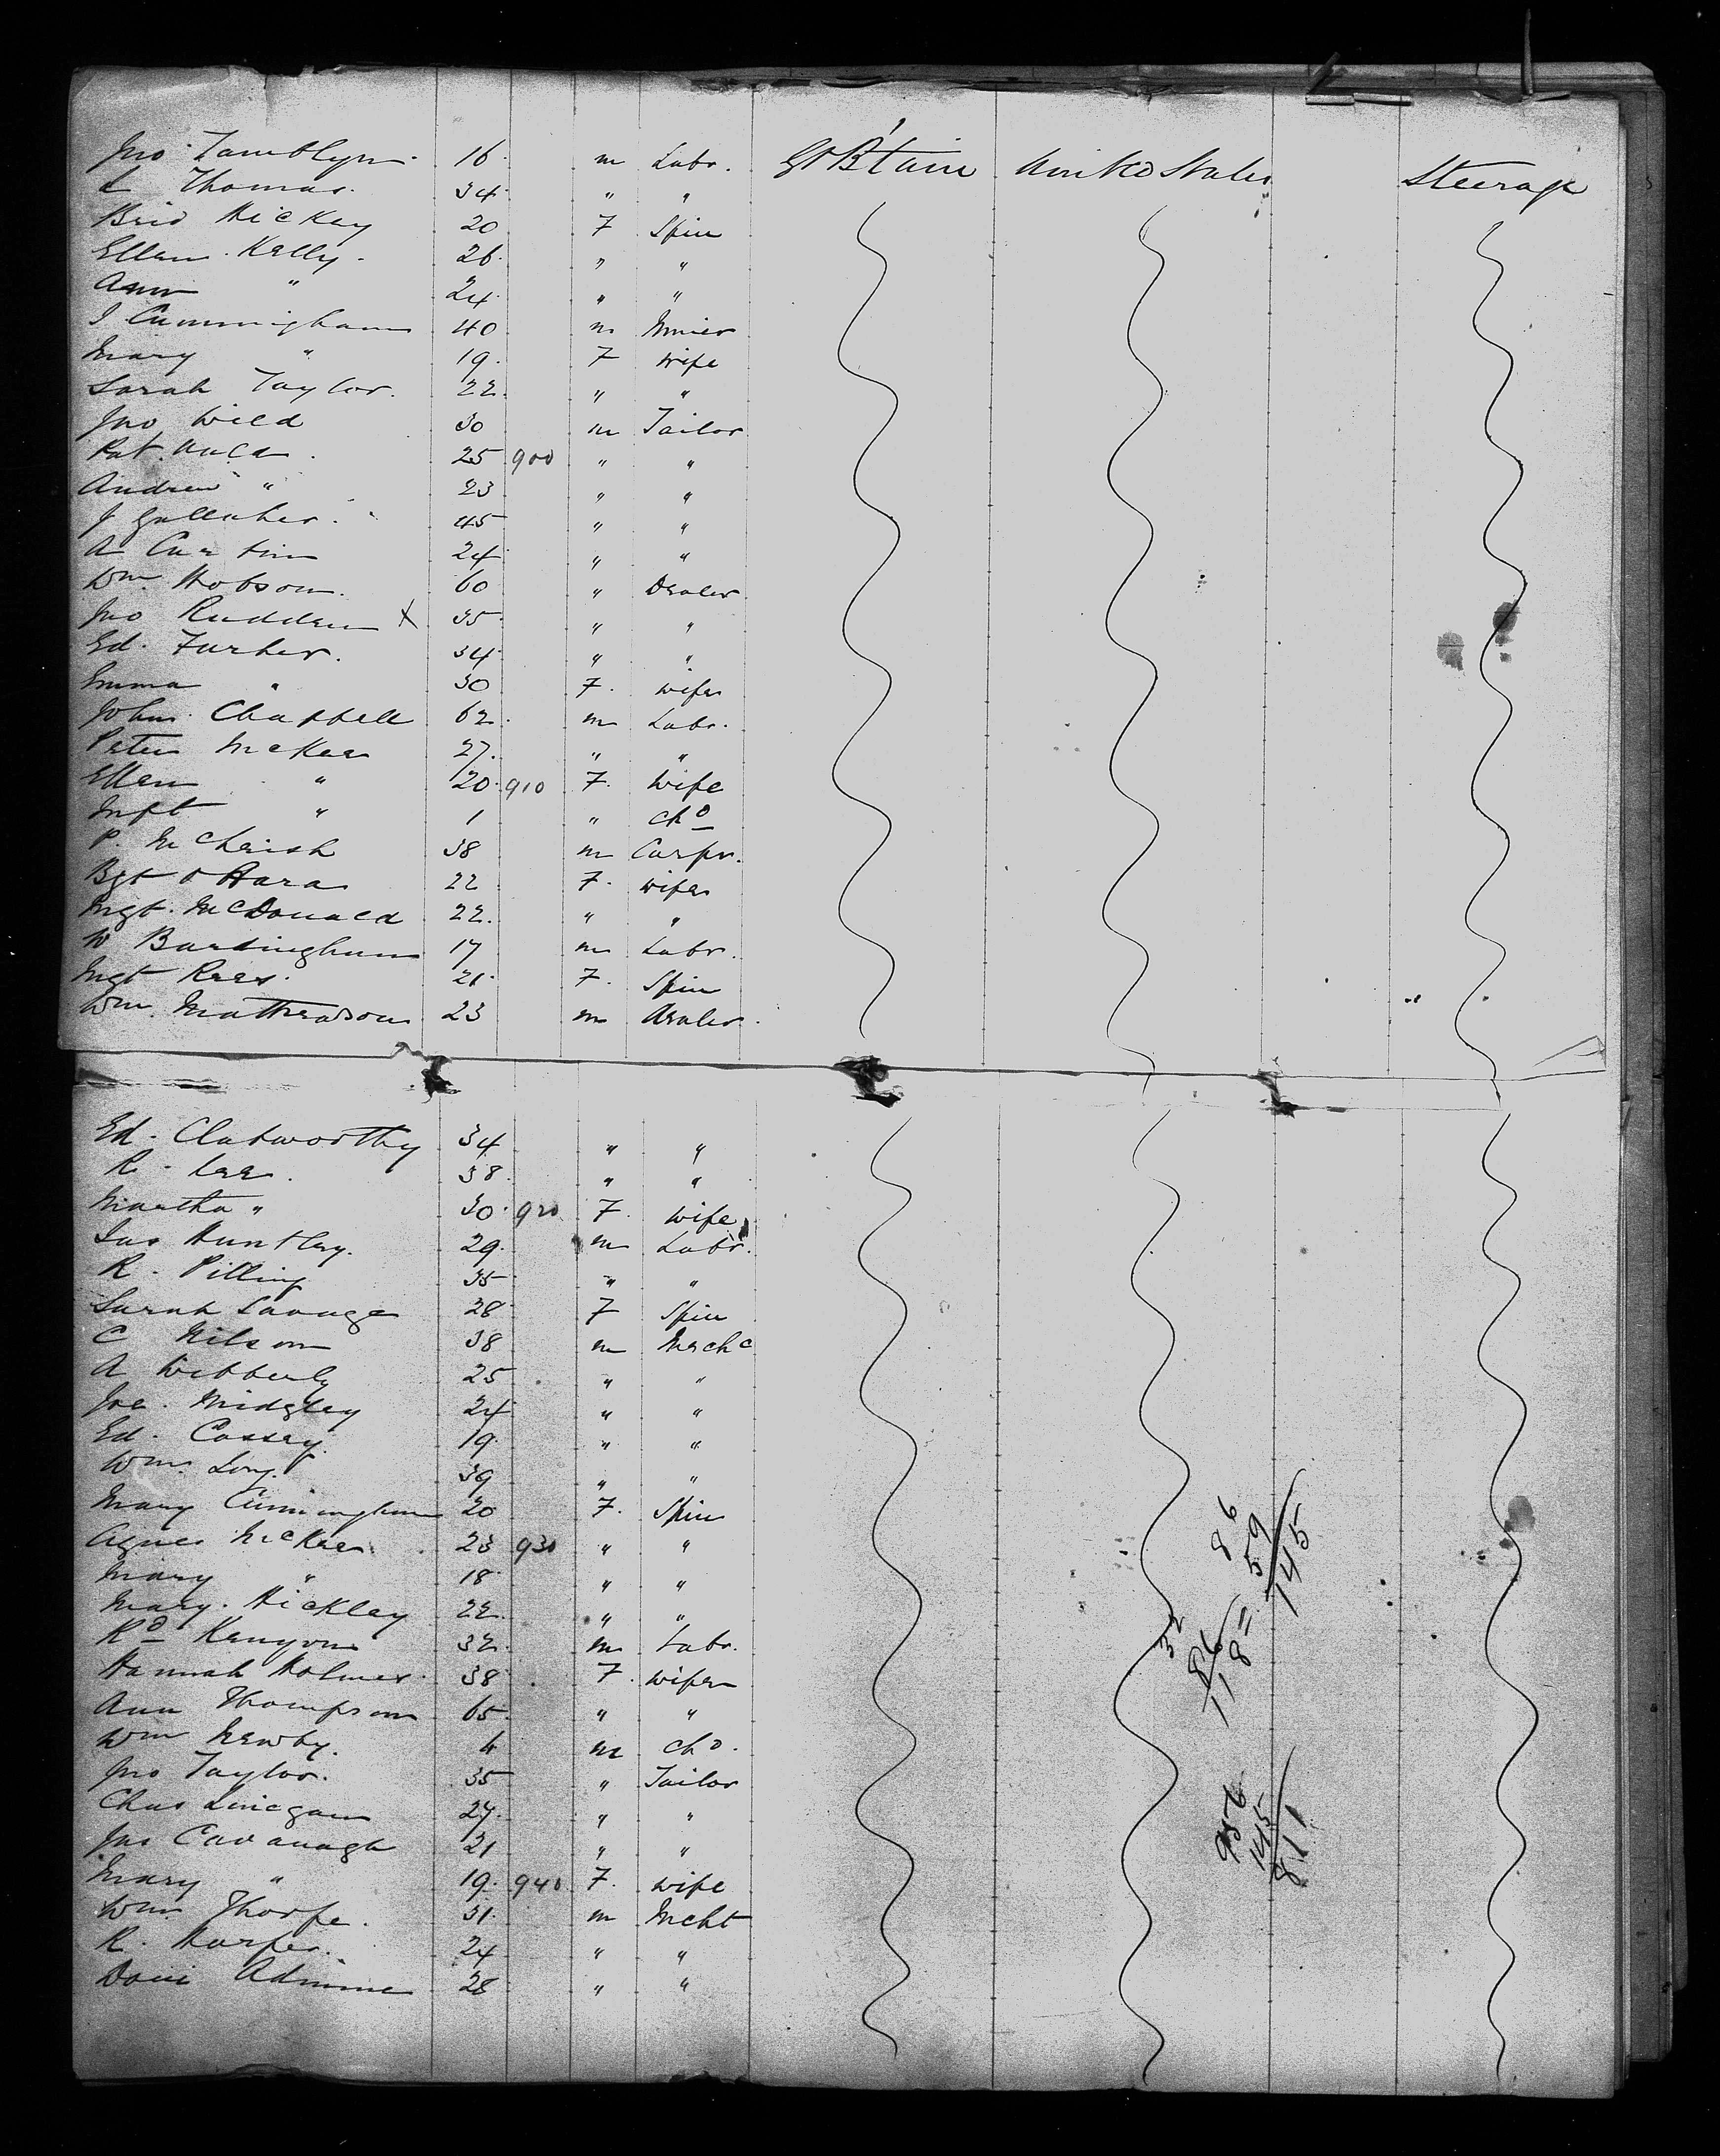 Jno Tamblyn 16 m Labr. Gt Btain United States Steerage
L Thomas. 34 " "
Brid Hickey 20 F Spin
Ellen Kelly 26 " "
Ann " 24 " "
J Cunningham 40 m Miner
Mary " 19 F Wife
Sarah Taylor. 22 " "
Jno Wild 30 m Tailor
Pat 25 900 " "
Andrew " 23 " "
J Gallaher 45 " "
A Curtin 24 " "
Wm Hobson 60 " Dealer
Jno Rudden X 35 " "
Ed. Furber. 34 " "
Emma " 30 F. Wife
John Chappell 62 m Labr.
Peter McKee 27 " "
Ellen " 20 910 F. Wife
Inft " 1 " Chd
P. 38 m Carpr.
Bgt O Hara 22 F. Wife
Mgt. McDonald 22 " "
W Bardingham 17 m Labr.
Mgt Rees 21 F. Spin
Wm. Mathewson 23 m Dealer
Ed. Clatworthy 34 " "
R. Lee 38 " "
Martha " 30 920 F. Wife
Jas Huntley. 29 m Labr.
R. Pilling 35 " "
Sarah Savage 28 F Spin
C Nilson 38 m Mechc
A Wibberly 25 " "
Joe. Midgley 24 " "
Ed. Cassey. 19 " "
Wm. Long. 39 " "
Mary Cunningham 20 F. Spin
Agnes McKee 23 930 " "
Mary " 18 " "
Mary. Hickley 22 " "
Rd Kenyon 32 m Labr.
Hannah Holmes 38 F. Wife
Ann Thompson 65 " "
Wm Newby. 4 m Chd.
Jno Taylor. 35 " Tailor
Chas Linegan 27 " "
Jas Cavanagh 21 " "
Mary " 19 940 F. Wife
Wm Thorpe. 31 m Mcht
R. Harper. 24 " "
28 " "
86
59
145
32
86
118
956
145
811